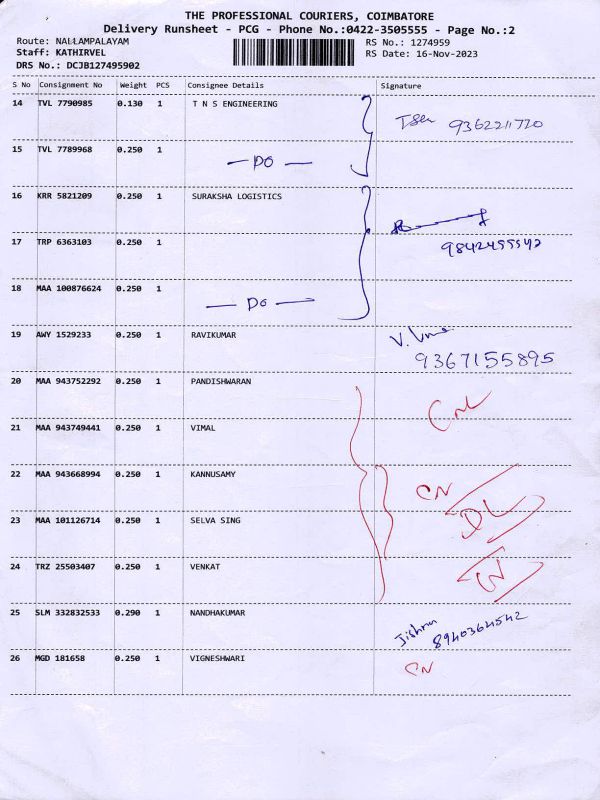 THE PROFESSIONAL COURIERS, COIMBATORE
Delivery Runsheet - PCG - Phone No.:0422-3505555 - Page No.:2
Route: NALLAMPALAYAM
RS No.: 1274959
Staff: KATHIRVEL
RS Date: 16-Nov-2023
DRS No.: DCJB127495902
S No Consignment No Weight PCS Consignee Details Signature
14 TVL 7790985 0.130 1 T N S ENGINEERING
9362211770
15 TVL 7789968 0.250 1
— DO —
16 KRR 5821209 0.250 1 SURAKSHA LOGISTICS
17 TRP 6363103 0.250 1
9842455542
18 MAA 100876624 0.250 1
— DO —
19 AWY 1529233 0.250 1 RAVIKUMAR
9367155895
20 MAA 943752292 0.250 1 PANDISHWARAN
21 MAA 943749441 0.250 1 VIMAL
22 MAA 943668994 0.250 1 KANNUSAMY
CN
DL
23 MAA 101126714 0.250 1 SELVA SING
24 TRZ 25503407 0.250 1 VENKAT
25 SLM 332832533 0.290 1 NANDHAKUMAR
8940364542
26 MGD 181658 0.250 1 VIGNESHWARI
CN